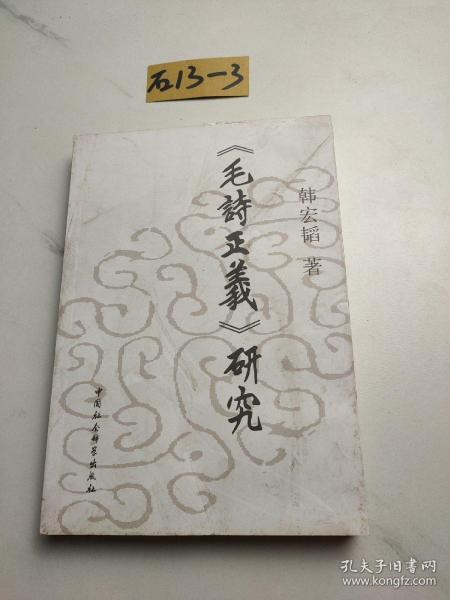 石13-3
《毛詩正義》研究
韩宏韬 著
中国社会科学出版社
孔夫子旧书网
www.kongfz.com